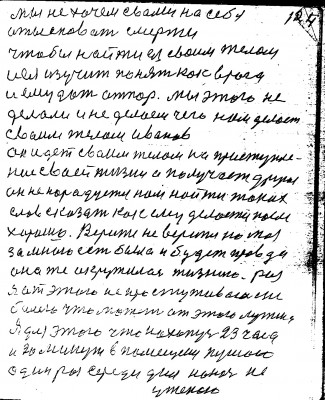 мы не хочем свами на себу
отысковат смерти
чтобы найти ея своим телом
ием изучит понят как врага
и ему дат отпор. мы этого не
делали и не делаем чего нам делает
своим телом Иванов
он идет своим телом на приступле-
ние своей жизни а получает другое
он не порадуется нам найти таких
слов сказат как ему делается
хорошо. Верите не верите но моя
замною ест была и будет правда
она же окружилася жизнию. раз
я от этого не простуживался не
болею что может от этого лучше
Я для этого что нахожуся 23 часа
и 30 минут в помещении кушаю
один раз среди дня ноча не
ужинаю